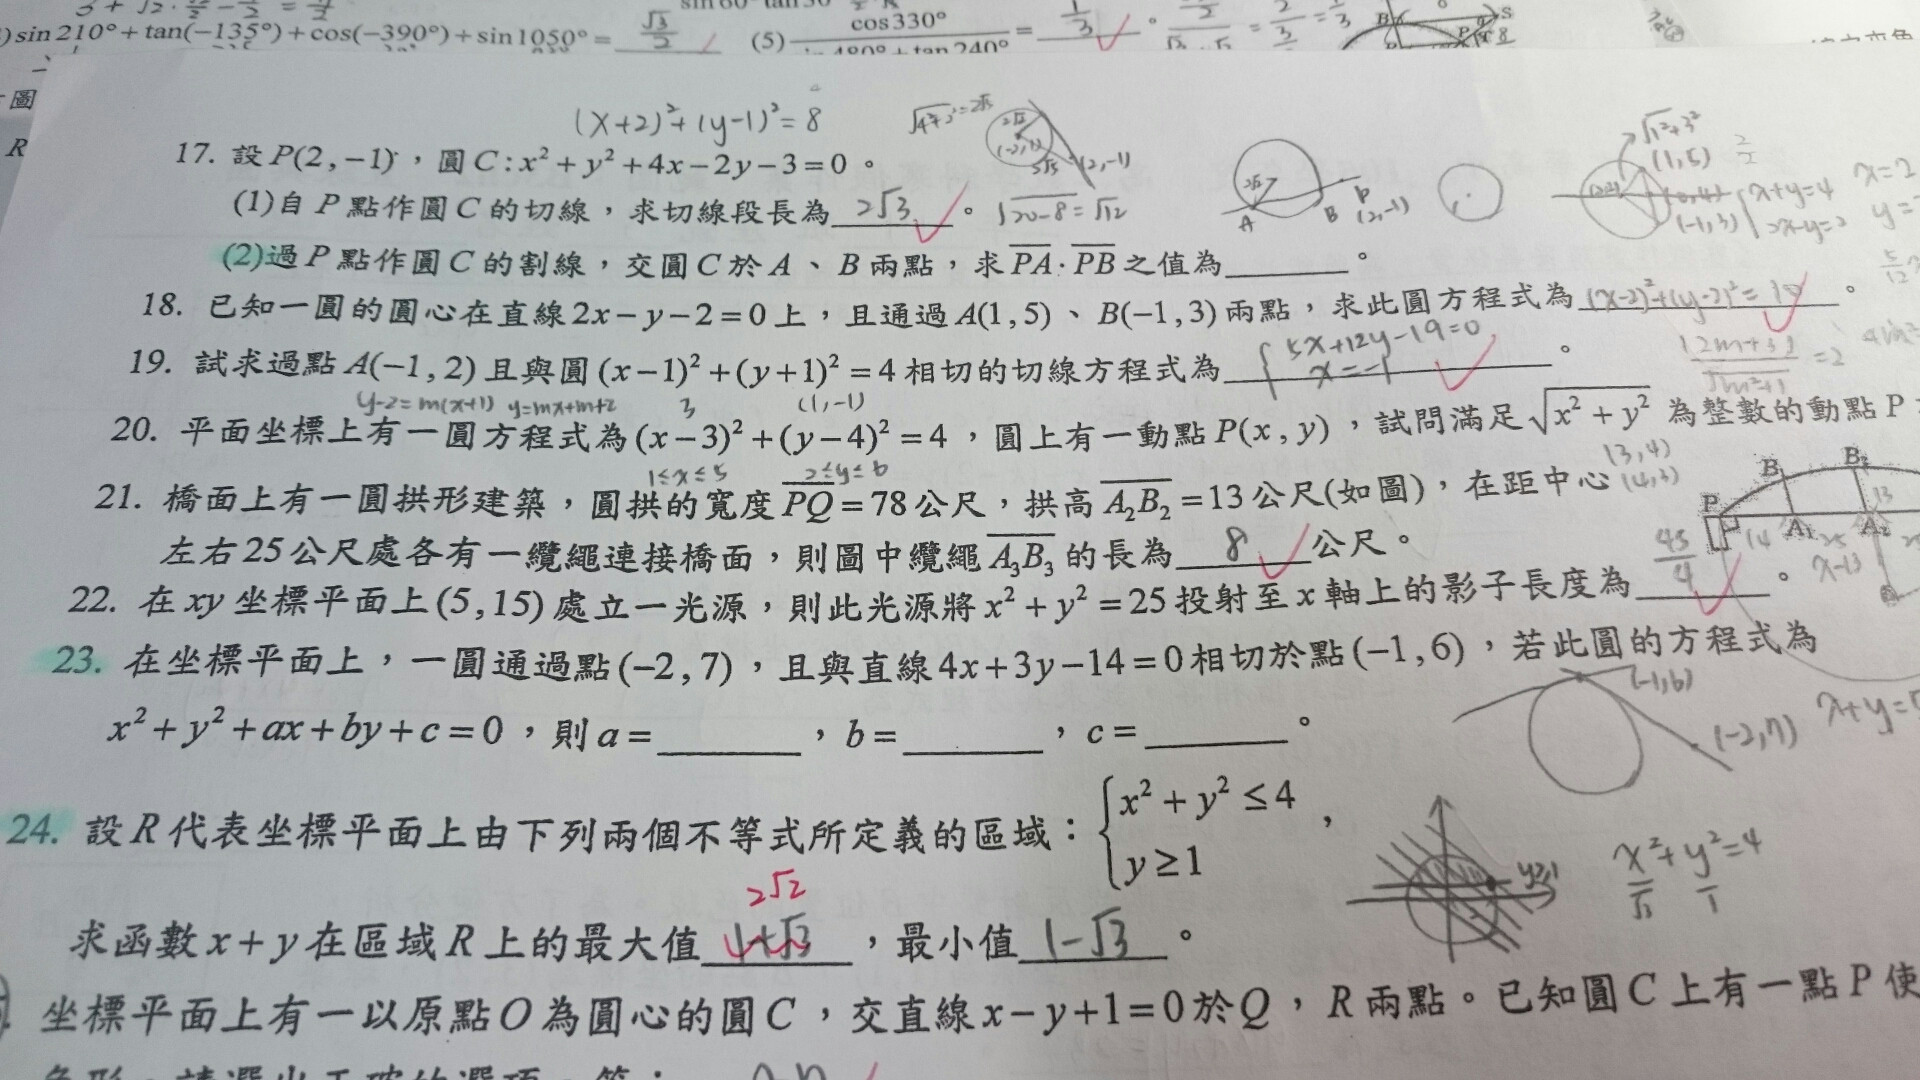 sin210°+tan(−135°)+cos(−390°)+sin1050°= √3/2 (5) cos330° = 1/3
圖
R
(x+2)²+(y-1)²=8
17. 設P(2,−1),圓C:x²+y²+4x−2y−3=0。
(1)自P點作圓C的切線,求切線段長為 2√3 。 √20-8=√12
(2)過P點作圓C的割線,交圓C於A、B兩點,求PA·PB之值為 。
A B P (2,-1)
(1,5)
(-1,3)
x+y=4
18. 已知一圓的圓心在直線2x−y−2=0上,且通過A(1,5)、B(−1,3)兩點,求此圓方程式為 (x-2)²+(y-2)²=10 。
19. 試求過點A(−1,2)且與圓(x−1)²+(y+1)²=4相切的切線方程式為 { 5x+12y-19=0 x=-1 。
y-2=m(x+1) y=mx+m+2 (1,-1)
20. 平面坐標上有一圓方程式為(x−3)²+(y−4)²=4,圓上有一動點P(x,y),試問滿足√x²+y² 為整數的動點P
1≤x≤5 2≤y≤6 (3,4)
21. 橋面上有一圓拱形建築,圓拱的寬度PQ=78公尺,拱高A₂B₂=13公尺(如圖),在距中心
左右25公尺處各有一纜繩連接橋面,則圖中纜繩A₃B₃的長為 8 公尺。
P B₁ B₂ A₁ A₂ 13 14 25 x-13
22. 在xy坐標平面上(5,15)處立一光源,則此光源將x²+y²=25投射至x軸上的影子長度為 45/4 。
23. 在坐標平面上,一圓通過點(−2,7),且與直線4x+3y−14=0相切於點(−1,6),若此圓的方程式為
x²+y²+ax+by+c=0,則a= ,b= ,c= 。
(-1,6)
(-2,7)
24. 設R代表坐標平面上由下列兩個不等式所定義的區域:{ x²+y²≤4 y≥1 ,
y≥1 x²+y²=4
√3 1
2√2
求函數x+y在區域R上的最大值 1+√3 ,最小值 1-√3 。
坐標平面上有一以原點O為圓心的圓C,交直線x−y+1=0於Q,R兩點。已知圓C上有一點P使